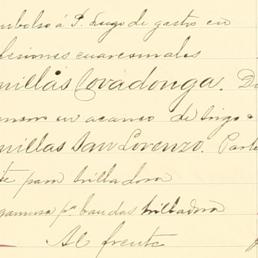 embolso á P. Lugo de gastos en
lesiones cuaresmales
nillas Covadonga. Di
en acarreo de trigo
nillas San Lorenzo. Parte
te para trilladora
gamuza pa bandas trilladora
Al frente